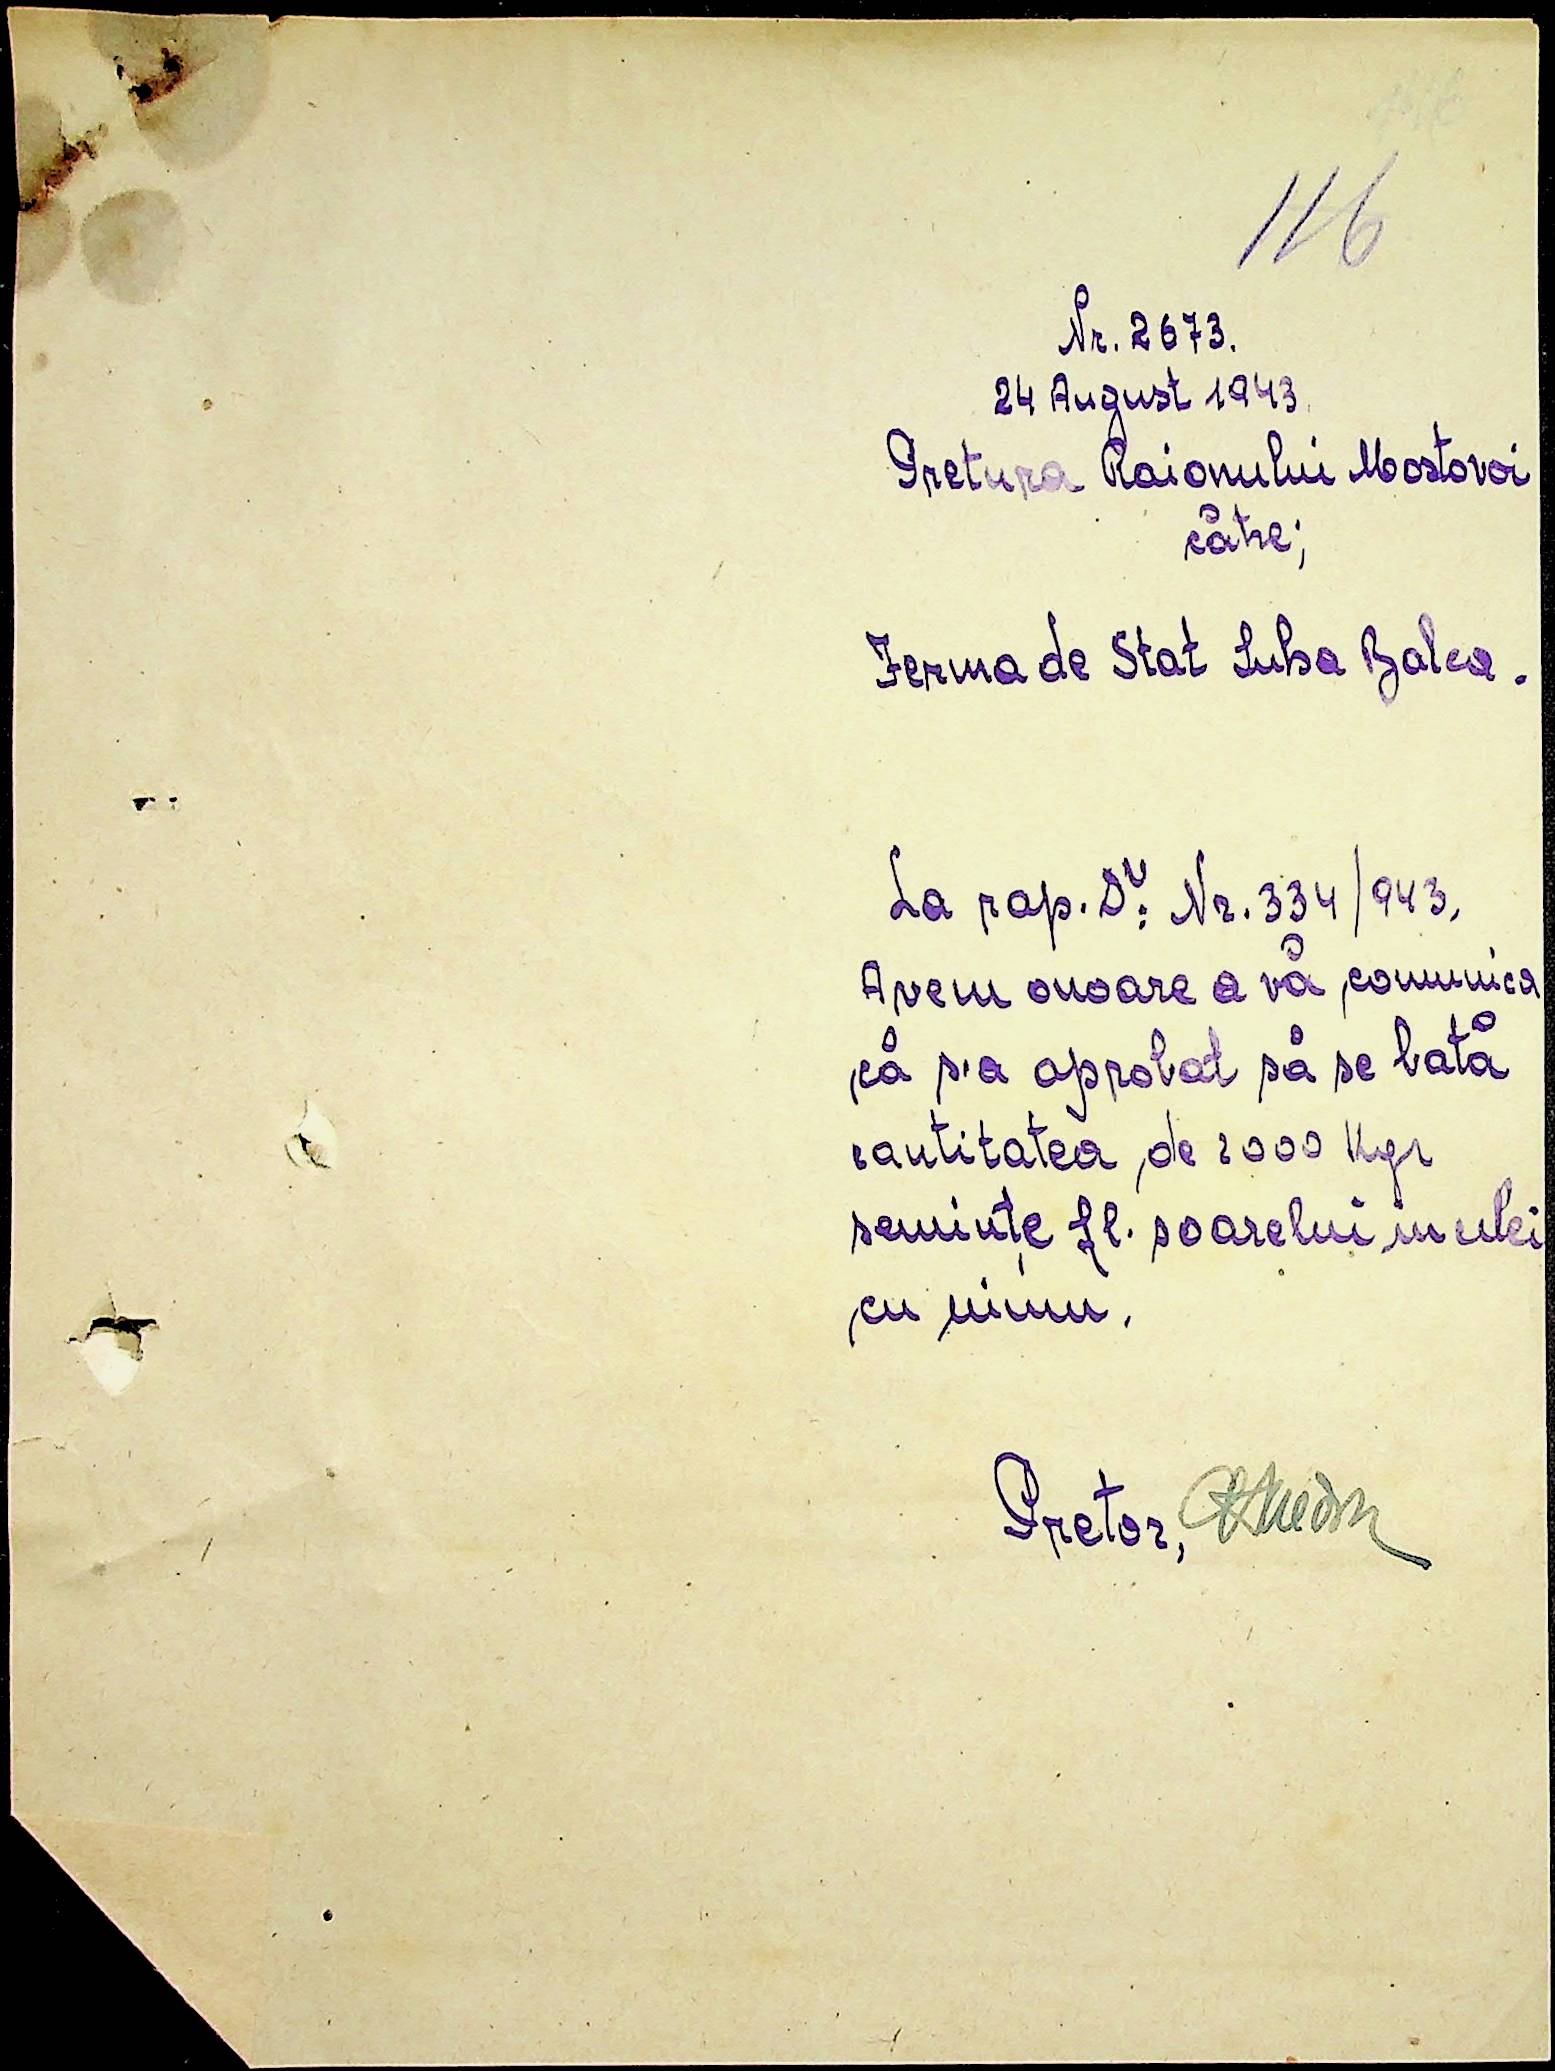 116
Nr. 2673.
24 August 1943.
Pretura Raionului Mostovoi
către;
Ferma de Stat Suha Balca.
La rap. Dv: Nr. 334/943,
Avem onoare a vă comunica
că s'a aprobat să se bată
cantitatea de 2000 Kgr
seminţe fl. soarelui in ulei
cu
Pretor,